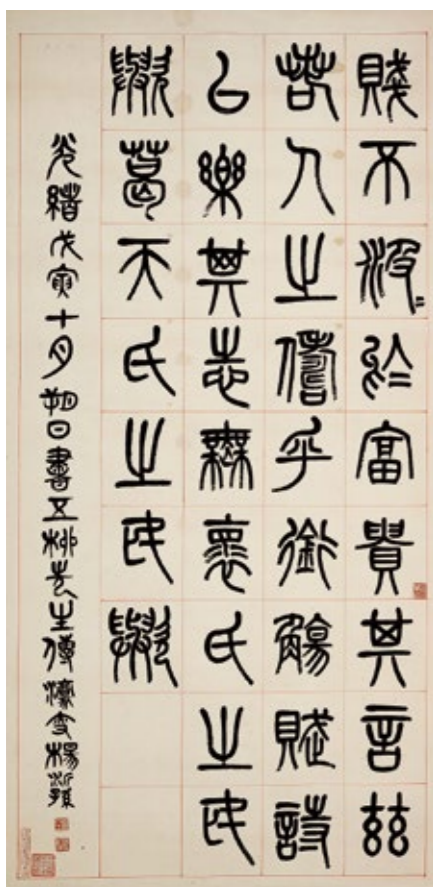 賤不汲〻於富貴其言茲
若人之儔乎銜觴賦詩
以樂其志無懷氏之民
歟葛天氏之民歟
光緒戊寅十月朔日書五柳先生傳濠叟楊沂孫